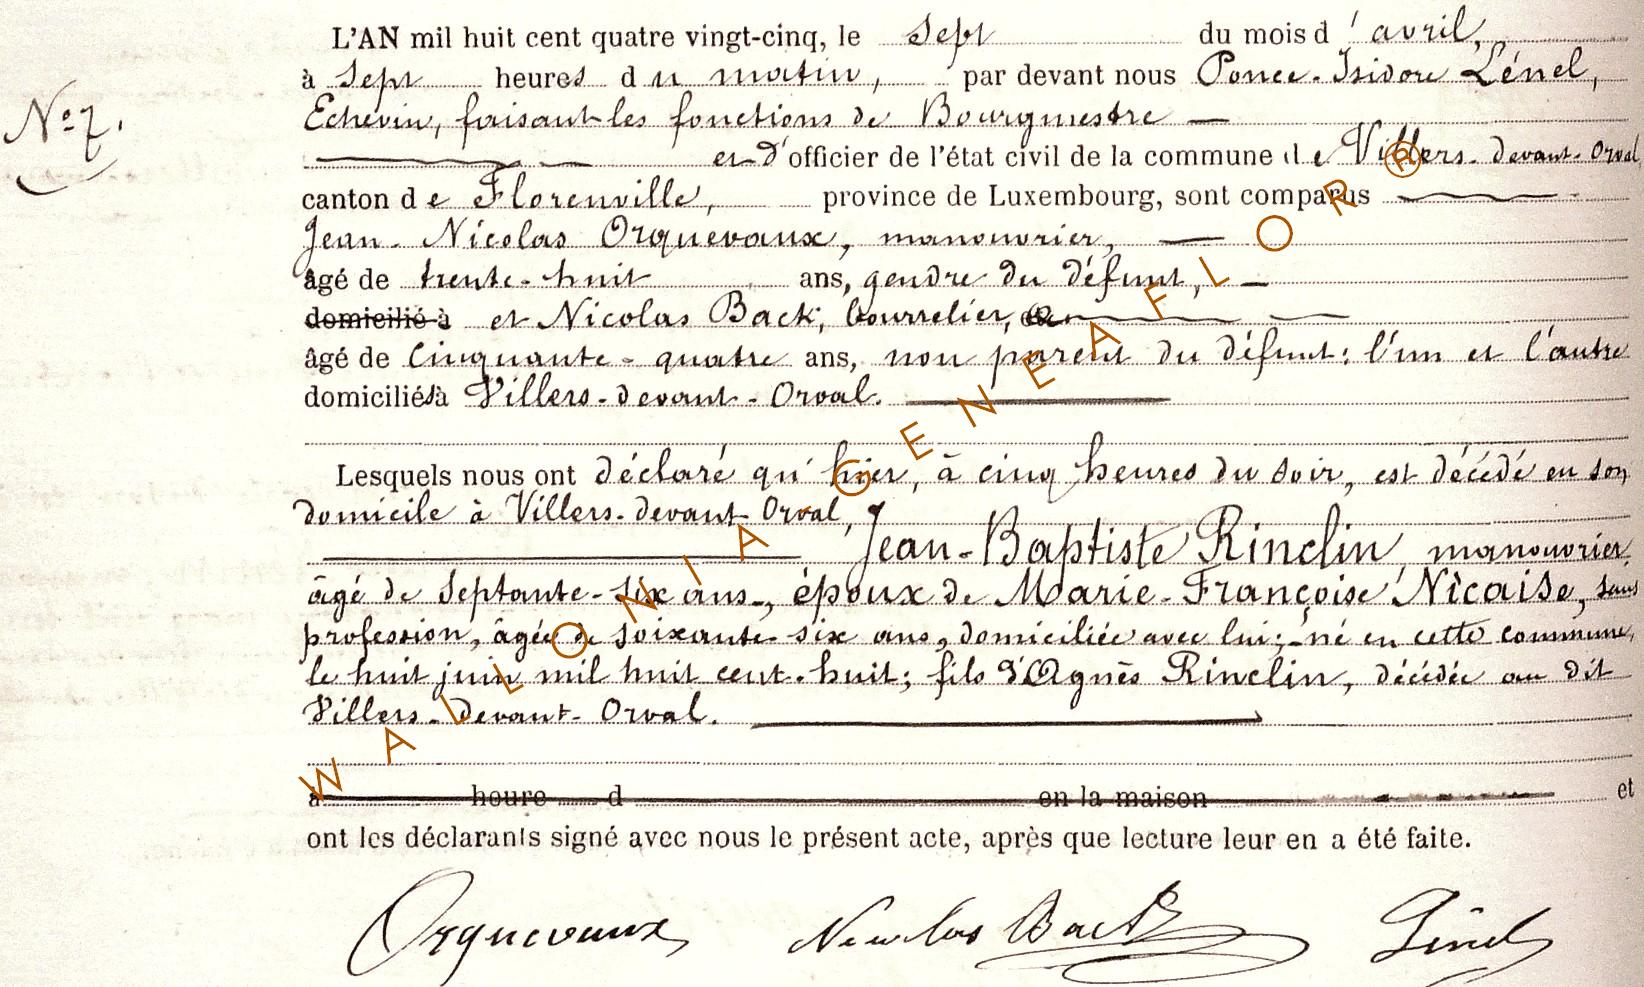 L'AN mil huit cent quatre vingt-cinq, le sept du mois d'avril,
à sept heures du matin, par devant nous Ponce-Isidore Lénel,
N° 7.
Echevin, faisant les fonctions de Bourgmestre —
et d'officier de l'état civil de la commune de Villers-devant-Orval
canton de Florenville, province de Luxembourg, sont comparus
Jean-Nicolas Orquevaux, manouvrier, —
âgé de trente-huit ans, gendre du défunt, —
domicilié à et Nicolas Back, bourrelier,
âgé de cinquante-quatre ans, non parent du défunt: l'un et l'autre
domiciliés à Villers-devant-Orval.
Lesquels nous ont déclaré qu'hier, à cinq heures du soir, est décédé en son
domicile à Villers-devant-Orval,
Jean-Baptiste Rinclin, manouvrier,
âgé de septante-six ans, époux de Marie-Françoise Nicaise, sans
profession, âgée de soixante-six ans, domiciliée avec lui; né en cette commune,
le huit juin mil huit cent-huit; fils d'Agnès Rinclin, décédée au dit
Villers-devant-Orval.
à heure d en la maison et
ont les déclarants signé avec nous le présent acte, après que lecture leur en a été faite.
Orquevaux Nicolas Back Lénel
WALLONIA-GENEAFLOR®